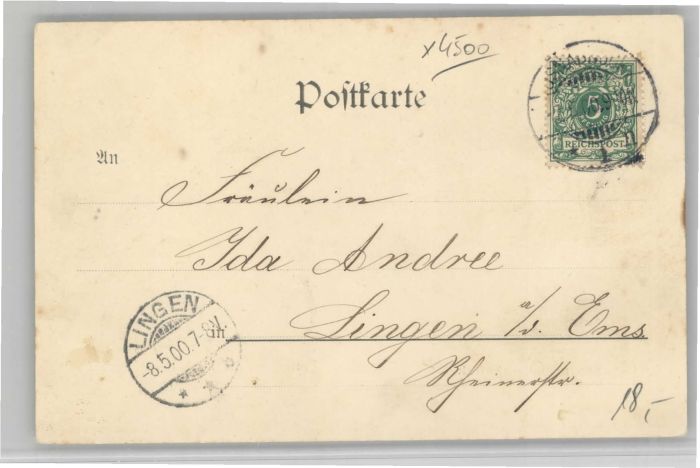 x4500
Postkarte
5
REICHSPOST
An
Fräulein
Ida Andree
in
Lingen a/d. Ems.
Rheinerstr.
LINGEN
-8.5.00.7-8V.
* * *
18,-